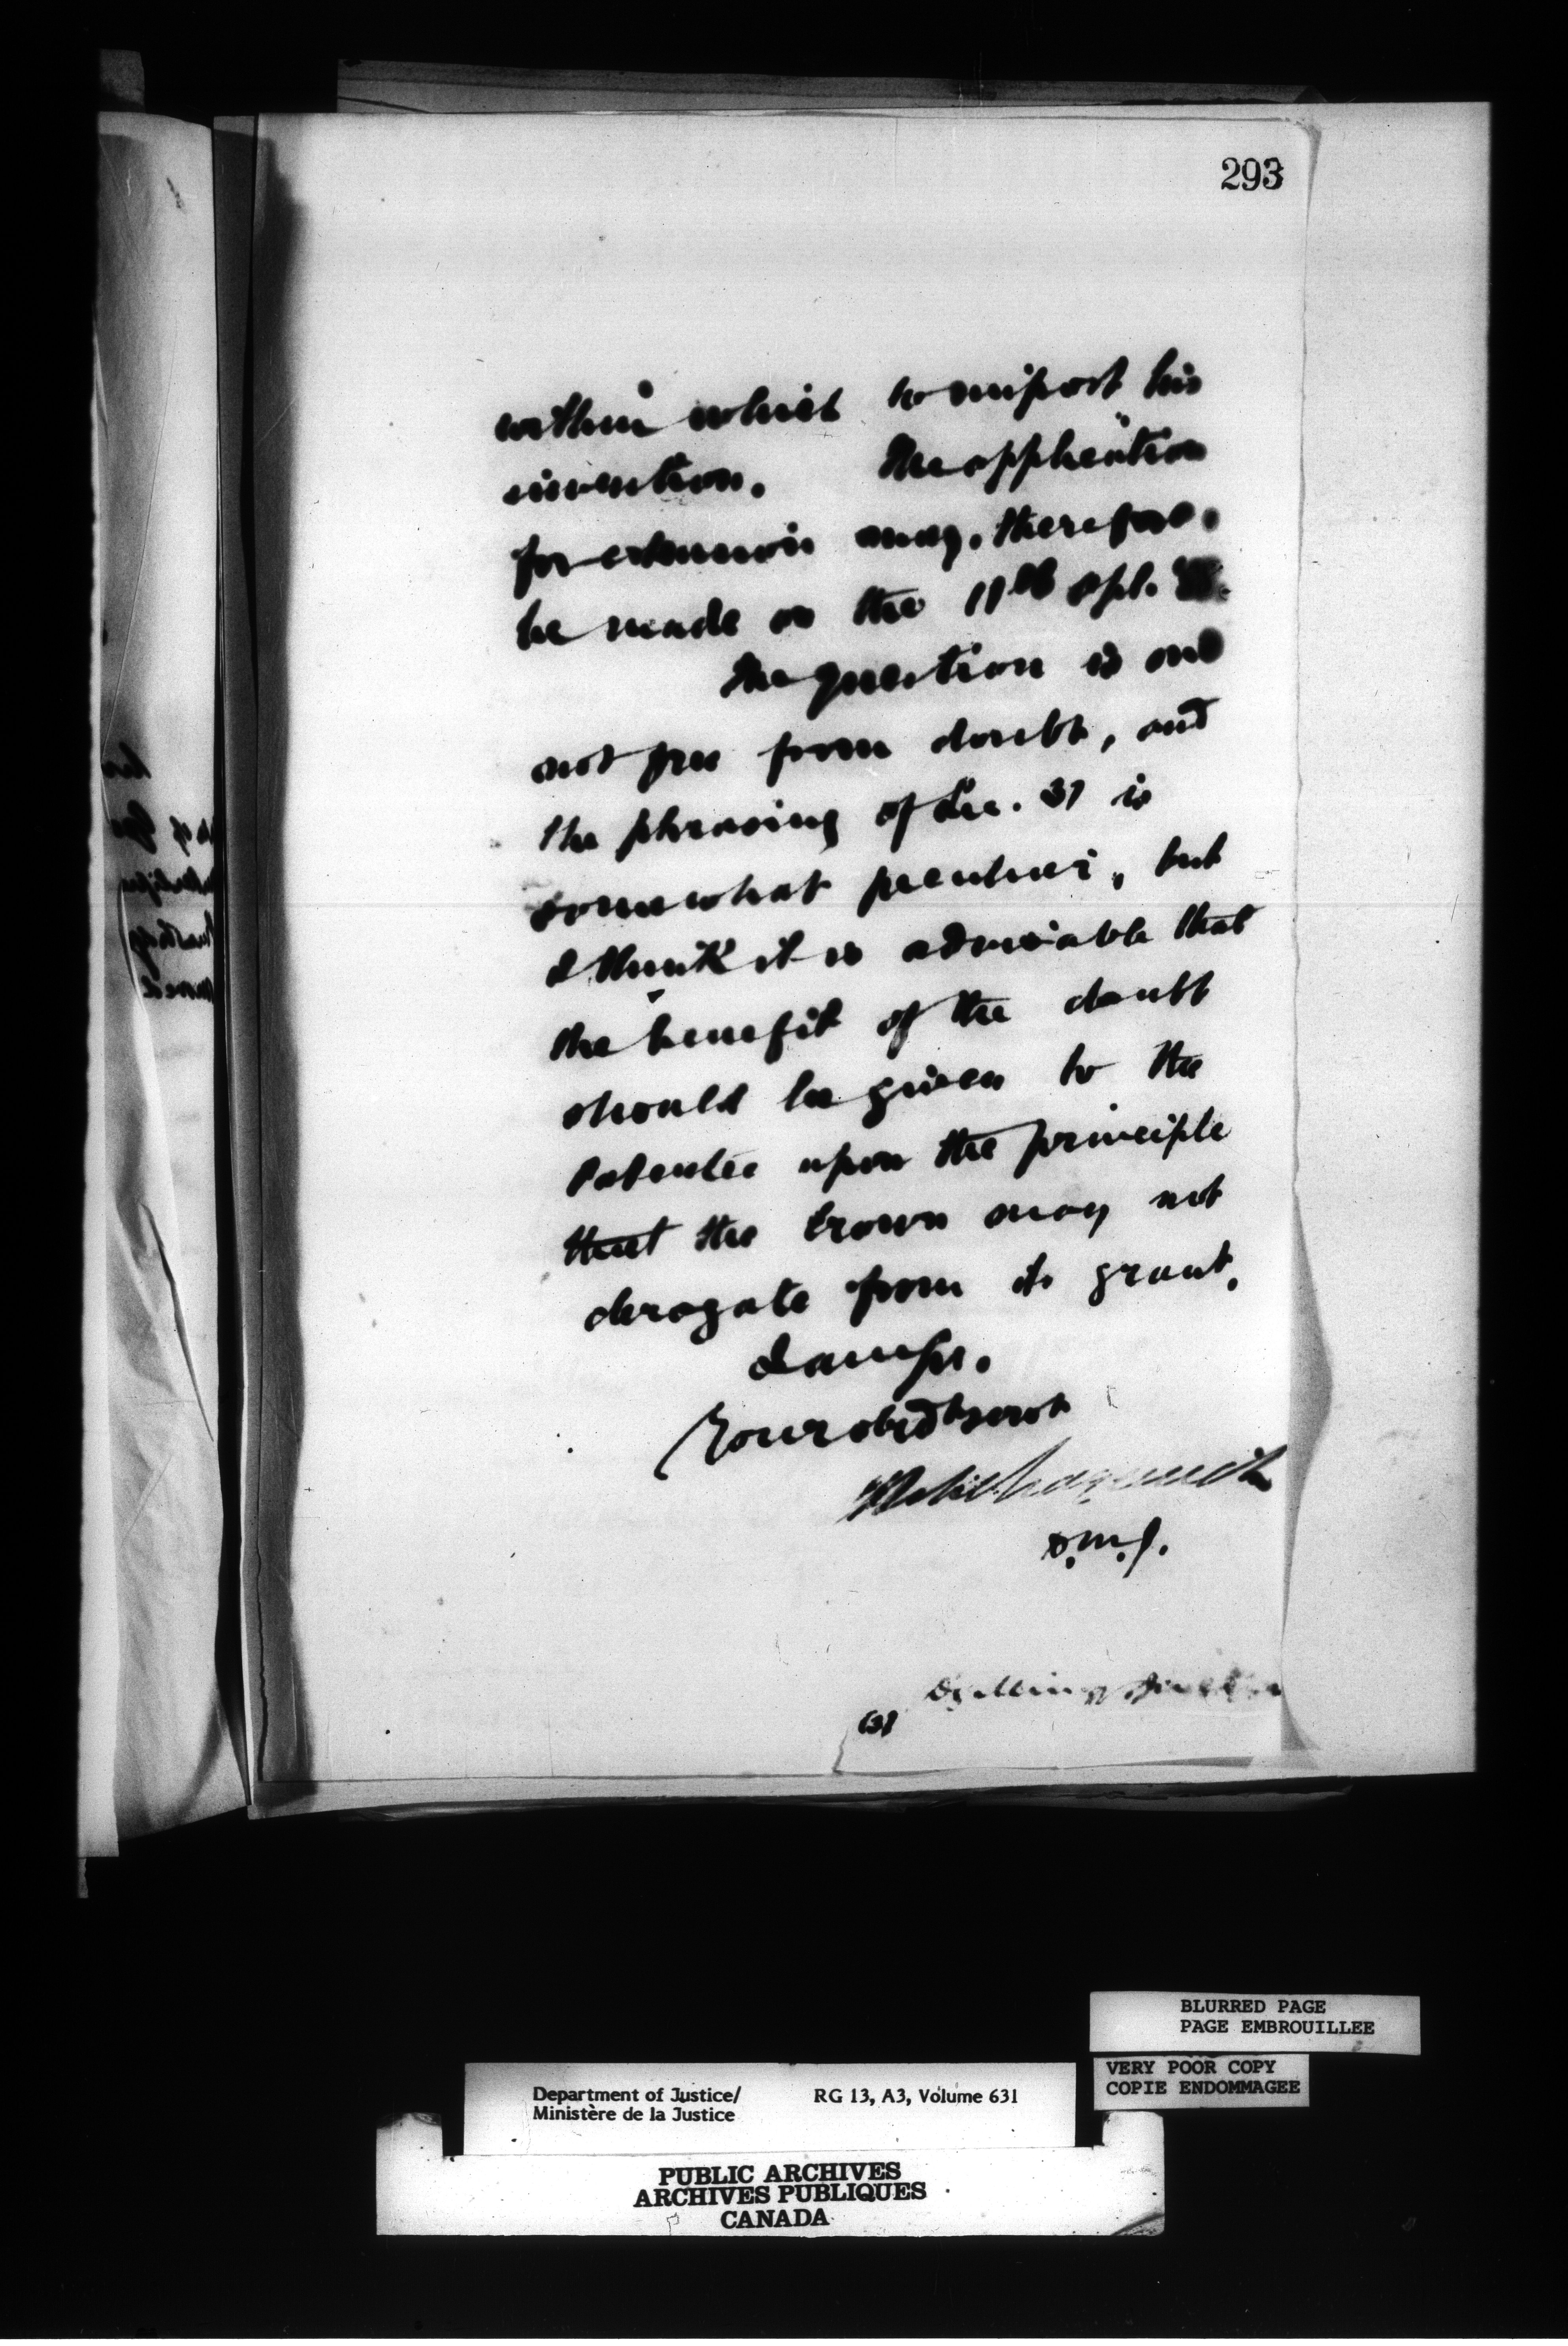 293
within which to import his
invention. The application
for extension may, therefore,
be made on the 11th Apl.
The question is one
not free from doubt, and
the phrasing of Sec. 37 is
somewhat peculiar, but
I think it is advisable that
the benefit of the doubt
should be given to the
Patentee upon the principle
that the Crown may not
derogate from its grant.
I am Sir.
Your obedt servt
D.M.J.
BLURRED PAGE
PAGE EMBROUILLEE
VERY POOR COPY
COPIE ENDOMMAGEE
Department of Justice/ RG 13, A3, Volume 631
Ministère de la Justice
PUBLIC ARCHIVES
ARCHIVES PUBLIQUES
CANADA